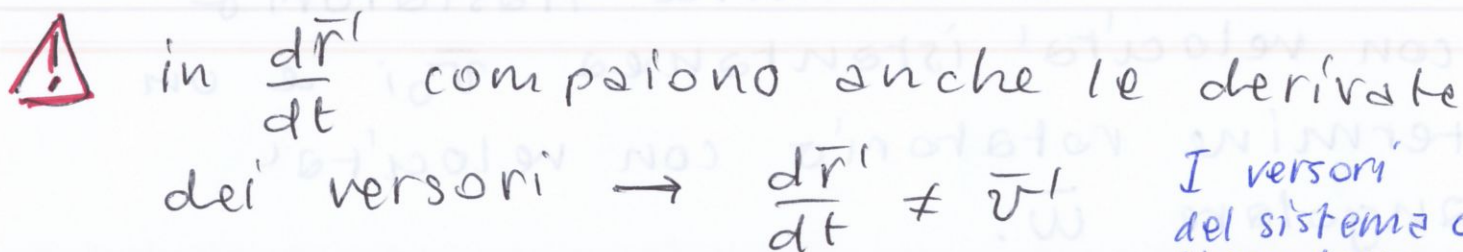 ⚠ in dr̄'/dt compaiono anche le derivate
dei versori → dr̄'/dt ≠ v̄'
I versori
del sistema